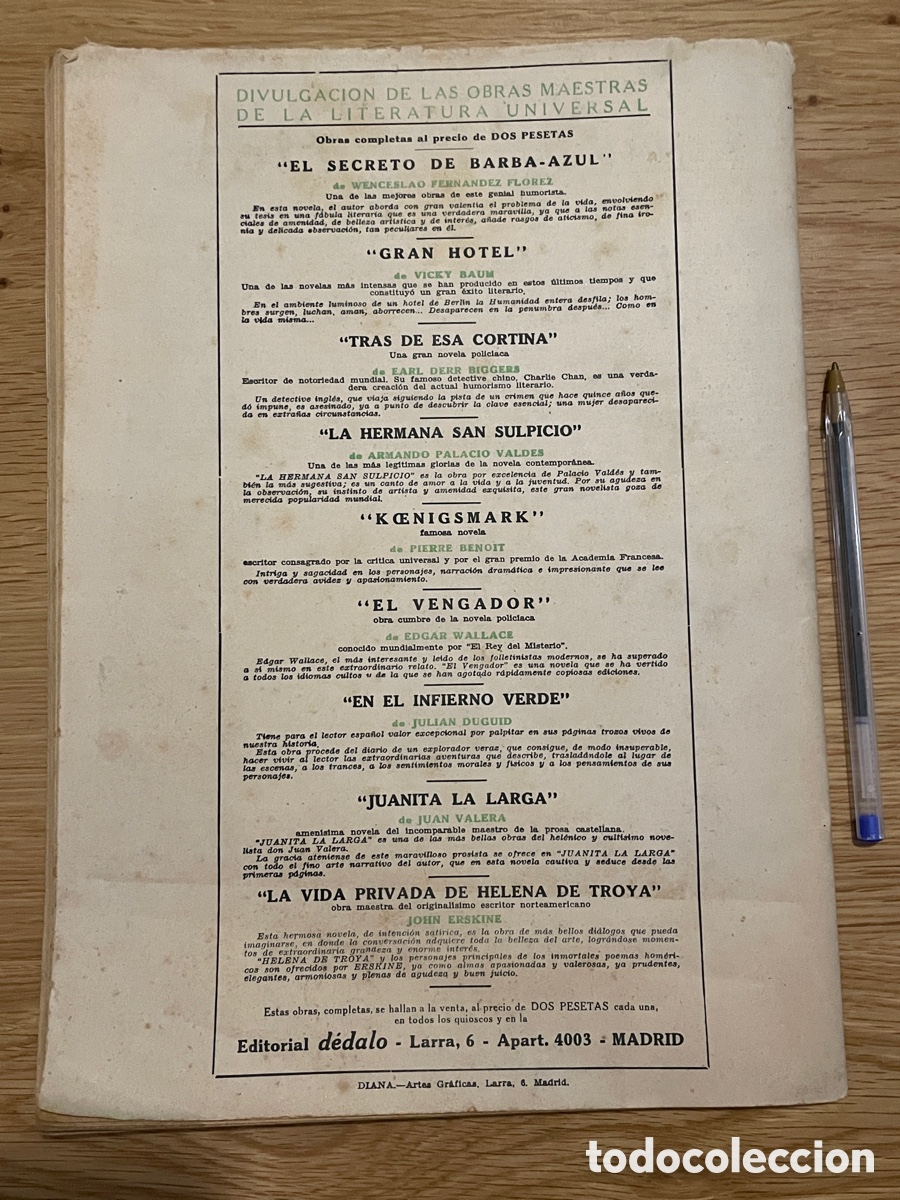 DIVULGACION DE LAS OBRAS MAESTRAS
DE LA LITERATURA UNIVERSAL
Obras completas al precio de DOS PESETAS
“EL SECRETO DE BARBA-AZUL”
de WENCESLAO FERNANDEZ FLOREZ
Una de las mejores obras de este genial humorista.
En esta novela, el autor aborda con gran valentía el problema de la vida, envolviendo
su tesis en una fábula literaria que es una verdadera maravilla, ya que a las notas esen-
ciales de amenidad, de belleza artística y de interés, añade rasgos de aticismo, de fina iro-
nía y delicada observación, tan peculiares en él.
“GRAN HOTEL”
de VICKY BAUM
Una de las novelas más intensas que se han producido en estos últimos tiempos y que
constituyó un gran éxito literario.
En el ambiente luminoso de un hotel de Berlín la Humanidad entera desfila; los hom-
bres surgen, luchan, aman, aborrecen... Desaparecen en la penumbra después... Como en
la vida misma...
“TRAS DE ESA CORTINA”
Una gran novela policiaca
de EARL DERR BIGGERS
Escritor de notoriedad mundial. Su famoso detective chino, Charlie Chan, es una verda-
dera creación del actual humorismo literario.
Un detective inglés, que viaja siguiendo la pista de un crimen que hace quince años que-
dó impune, es asesinado, ya a punto de descubrir la clave esencial; una mujer desapareci-
da en extrañas circunstancias.
“LA HERMANA SAN SULPICIO”
de ARMANDO PALACIO VALDES
Una de las más legítimas glorias de la novela contemporánea.
“LA HERMANA SAN SULPICIO” es la obra por excelencia de Palacio Valdés y tam-
bién la más sugestiva; es un canto de amor a la vida y a la juventud. Por su agudeza en
la observación, su instinto de artista y amenidad exquisita, este gran novelista goza de
merecida popularidad mundial.
“KŒNIGSMARK”
famosa novela
de PIERRE BENOIT
escritor consagrado por la crítica universal y por el gran premio de la Academia Francesa.
Intriga y sagacidad en los personajes, narración dramática e impresionante que se lee
con verdadera avidez y apasionamiento.
“EL VENGADOR”
obra cumbre de la novela policiaca
de EDGAR WALLACE
conocido mundialmente por "El Rey del Misterio".
Edgar Wallace, el más interesante y leído de los folletinistas modernos, se ha superado
a sí mismo en este extraordinario relato. "El Vengador" es una novela que se ha vertido
a todos los idiomas cultos y de la que se han agotado rápidamente copiosas ediciones.
“EN EL INFIERNO VERDE”
de JULIAN DUGUID
Tiene para el lector español valor excepcional por palpitar en sus páginas trozos vivos de
nuestra historia.
Esta obra procede del diario de un explorador veraz, que consigue, de modo insuperable,
hacer vivir al lector las extraordinarias aventuras que describe, trasladándole al lugar de
las escenas, a los trances, a los sentimientos morales y físicos y a los pensamientos de sus
personajes.
“JUANITA LA LARGA”
de JUAN VALERA
amenísima novela del incomparable maestro de la prosa castellana.
"JUANITA LA LARGA" es una de las más bellas obras del helénico y cultísimo nove-
lista don Juan Valera.
La gracia ateniense de este maravilloso prosista se ofrece en "JUANITA LA LARGA"
con todo el fino arte narrativo del autor, que en esta novela cautiva y seduce desde las
primeras páginas.
“LA VIDA PRIVADA DE HELENA DE TROYA”
obra maestra del originalísimo escritor norteamericano
JOHN ERSKINE
Esta hermosa novela, de intención satírica, es la obra de más bellos diálogos que pueda
imaginarse, en donde la conversación adquiere toda la belleza del arte, lográndose momen-
tos de extraordinaria grandeza y enorme interés.
"HELENA DE TROYA" y los personajes principales de los inmortales poemas homéri-
cos son ofrecidos por ERSKINE, ya como almas apasionadas y valerosas, ya prudentes,
elegantes, armoniosas y plenas de agudeza y buen juicio.
Estas obras, completas, se hallan a la venta, al precio de DOS PESETAS cada una,
en todos los quioscos y en la
Editorial dédalo - Larra, 6 - Apart. 4003 - MADRID
DIANA.—Artes Gráficas, Larra, 6. Madrid.
todocoleccion